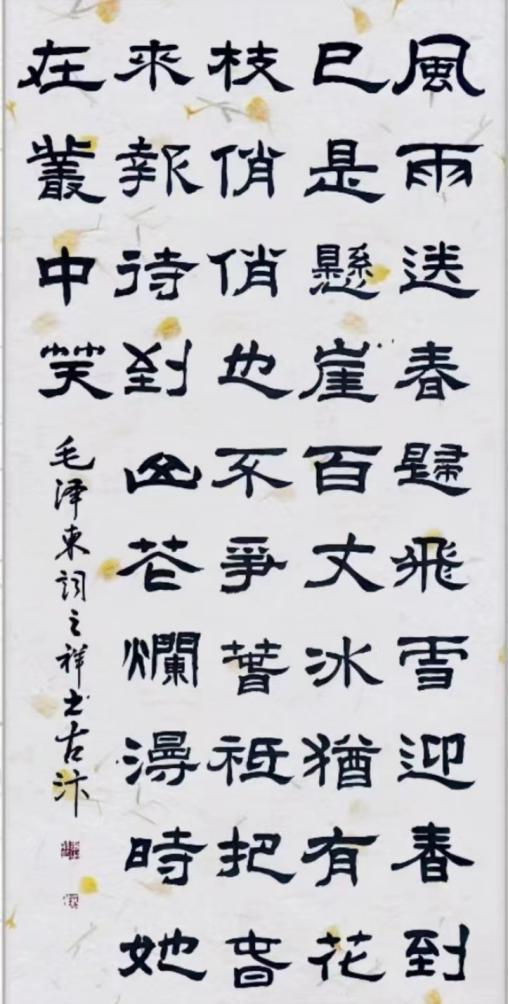 風雨送春歸飛雪迎春到
已是懸崖百丈冰猶有花
枝俏俏也不爭春祗把春
來報待到山花爛漫時她
在叢中笑
毛泽東詞之祥书古汴